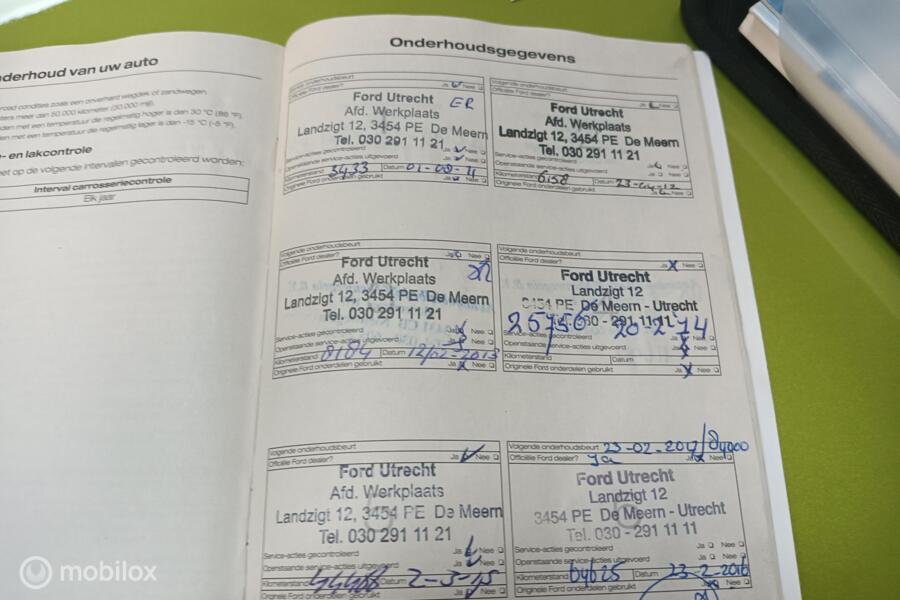 nderhoud van uw auto
- en lakcontrole
et op de volgende intervallen gecontroleerd worden:
Interval carrosseriecontrole
Elk jaar
Onderhoudsgegevens
Ja Nee
Ford Utrecht
ER
Afd. Werkplaats
Landzigt 12, 3454 PE De Meern
Tel. 030 291 11 21
Service-acties gecontroleerd
Openstaande service-acties uitgevoerd
Kilometerstand 3433 Datum
Originele Ford onderdelen gebruikt Ja Nee
Volgende onderhoudsbeurt
Ja Nee
Ford Utrecht
Afd. Werkplaats
Landzigt 12, 3454 PE De Meern
Tel. 030 291 11 21
Service-acties gecontroleerd
Openstaande service-acties uitgevoerd Ja Nee
Kilometerstand 6158 Datum
Originele Ford onderdelen gebruikt Ja Nee
Volgende onderhoudsbeurt
Officiële Ford dealer? Ja Nee
Ford Utrecht
Afd. Werkplaats
Landzigt 12, 3454 PE De Meern
Tel. 030 291 11 21
Service-acties gecontroleerd Ja Nee
Openstaande service-acties uitgevoerd Ja Nee
Kilometerstand 8184 Datum 12/02-2013
Originele Ford onderdelen gebruikt Ja Nee
Volgende onderhoudsbeurt
Officiële Ford dealer? Ja Nee
Ford Utrecht
Landzigt 12
3454 PE De Meern - Utrecht
25756 20-2-14
Service-acties gecontroleerd Ja Nee
Openstaande service-acties uitgevoerd Ja Nee
Kilometerstand Datum
Originele Ford onderdelen gebruikt Ja Nee
Volgende onderhoudsbeurt
Officiële Ford dealer? Ja Nee
Ford Utrecht
Afd. Werkplaats
Landzigt 12, 3454 PE De Meern
Tel. 030 291 11 21
Service-acties gecontroleerd Ja Nee
Openstaande service-acties uitgevoerd Ja Nee
Kilometerstand Datum 2-3-15
Originele Ford onderdelen gebruikt Ja Nee
Volgende onderhoudsbeurt 23-02-2017/84000
Officiële Ford dealer? Ja Ja Nee
Ford Utrecht
Landzigt 12
3454 PE De Meern - Utrecht
Tel. 030 - 291 11 11
Service-acties gecontroleerd Ja Nee
Openstaande service-acties uitgevoerd Ja Nee
Kilometerstand Datum 23-2-2016
Originele Ford onderdelen gebruikt Nee
mobilox